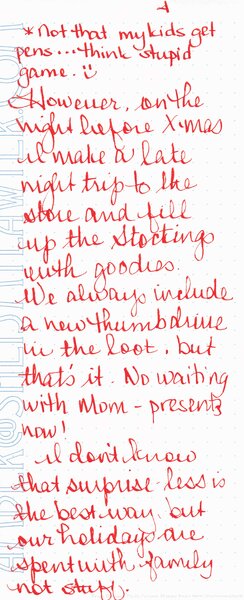 *Not that my kids get
pens... think stupid
game. :)
However, on the
night before X-mas
I make a late
night trip to the
store and fill
up the stockings
with goodies.
We always include
a new thumbdrive
in the loot, but
that's it. No waiting
with Mom - presents
now!
I don't know
that surprise-less is
the best way, but
our holidays are
spent with family
not stuff.